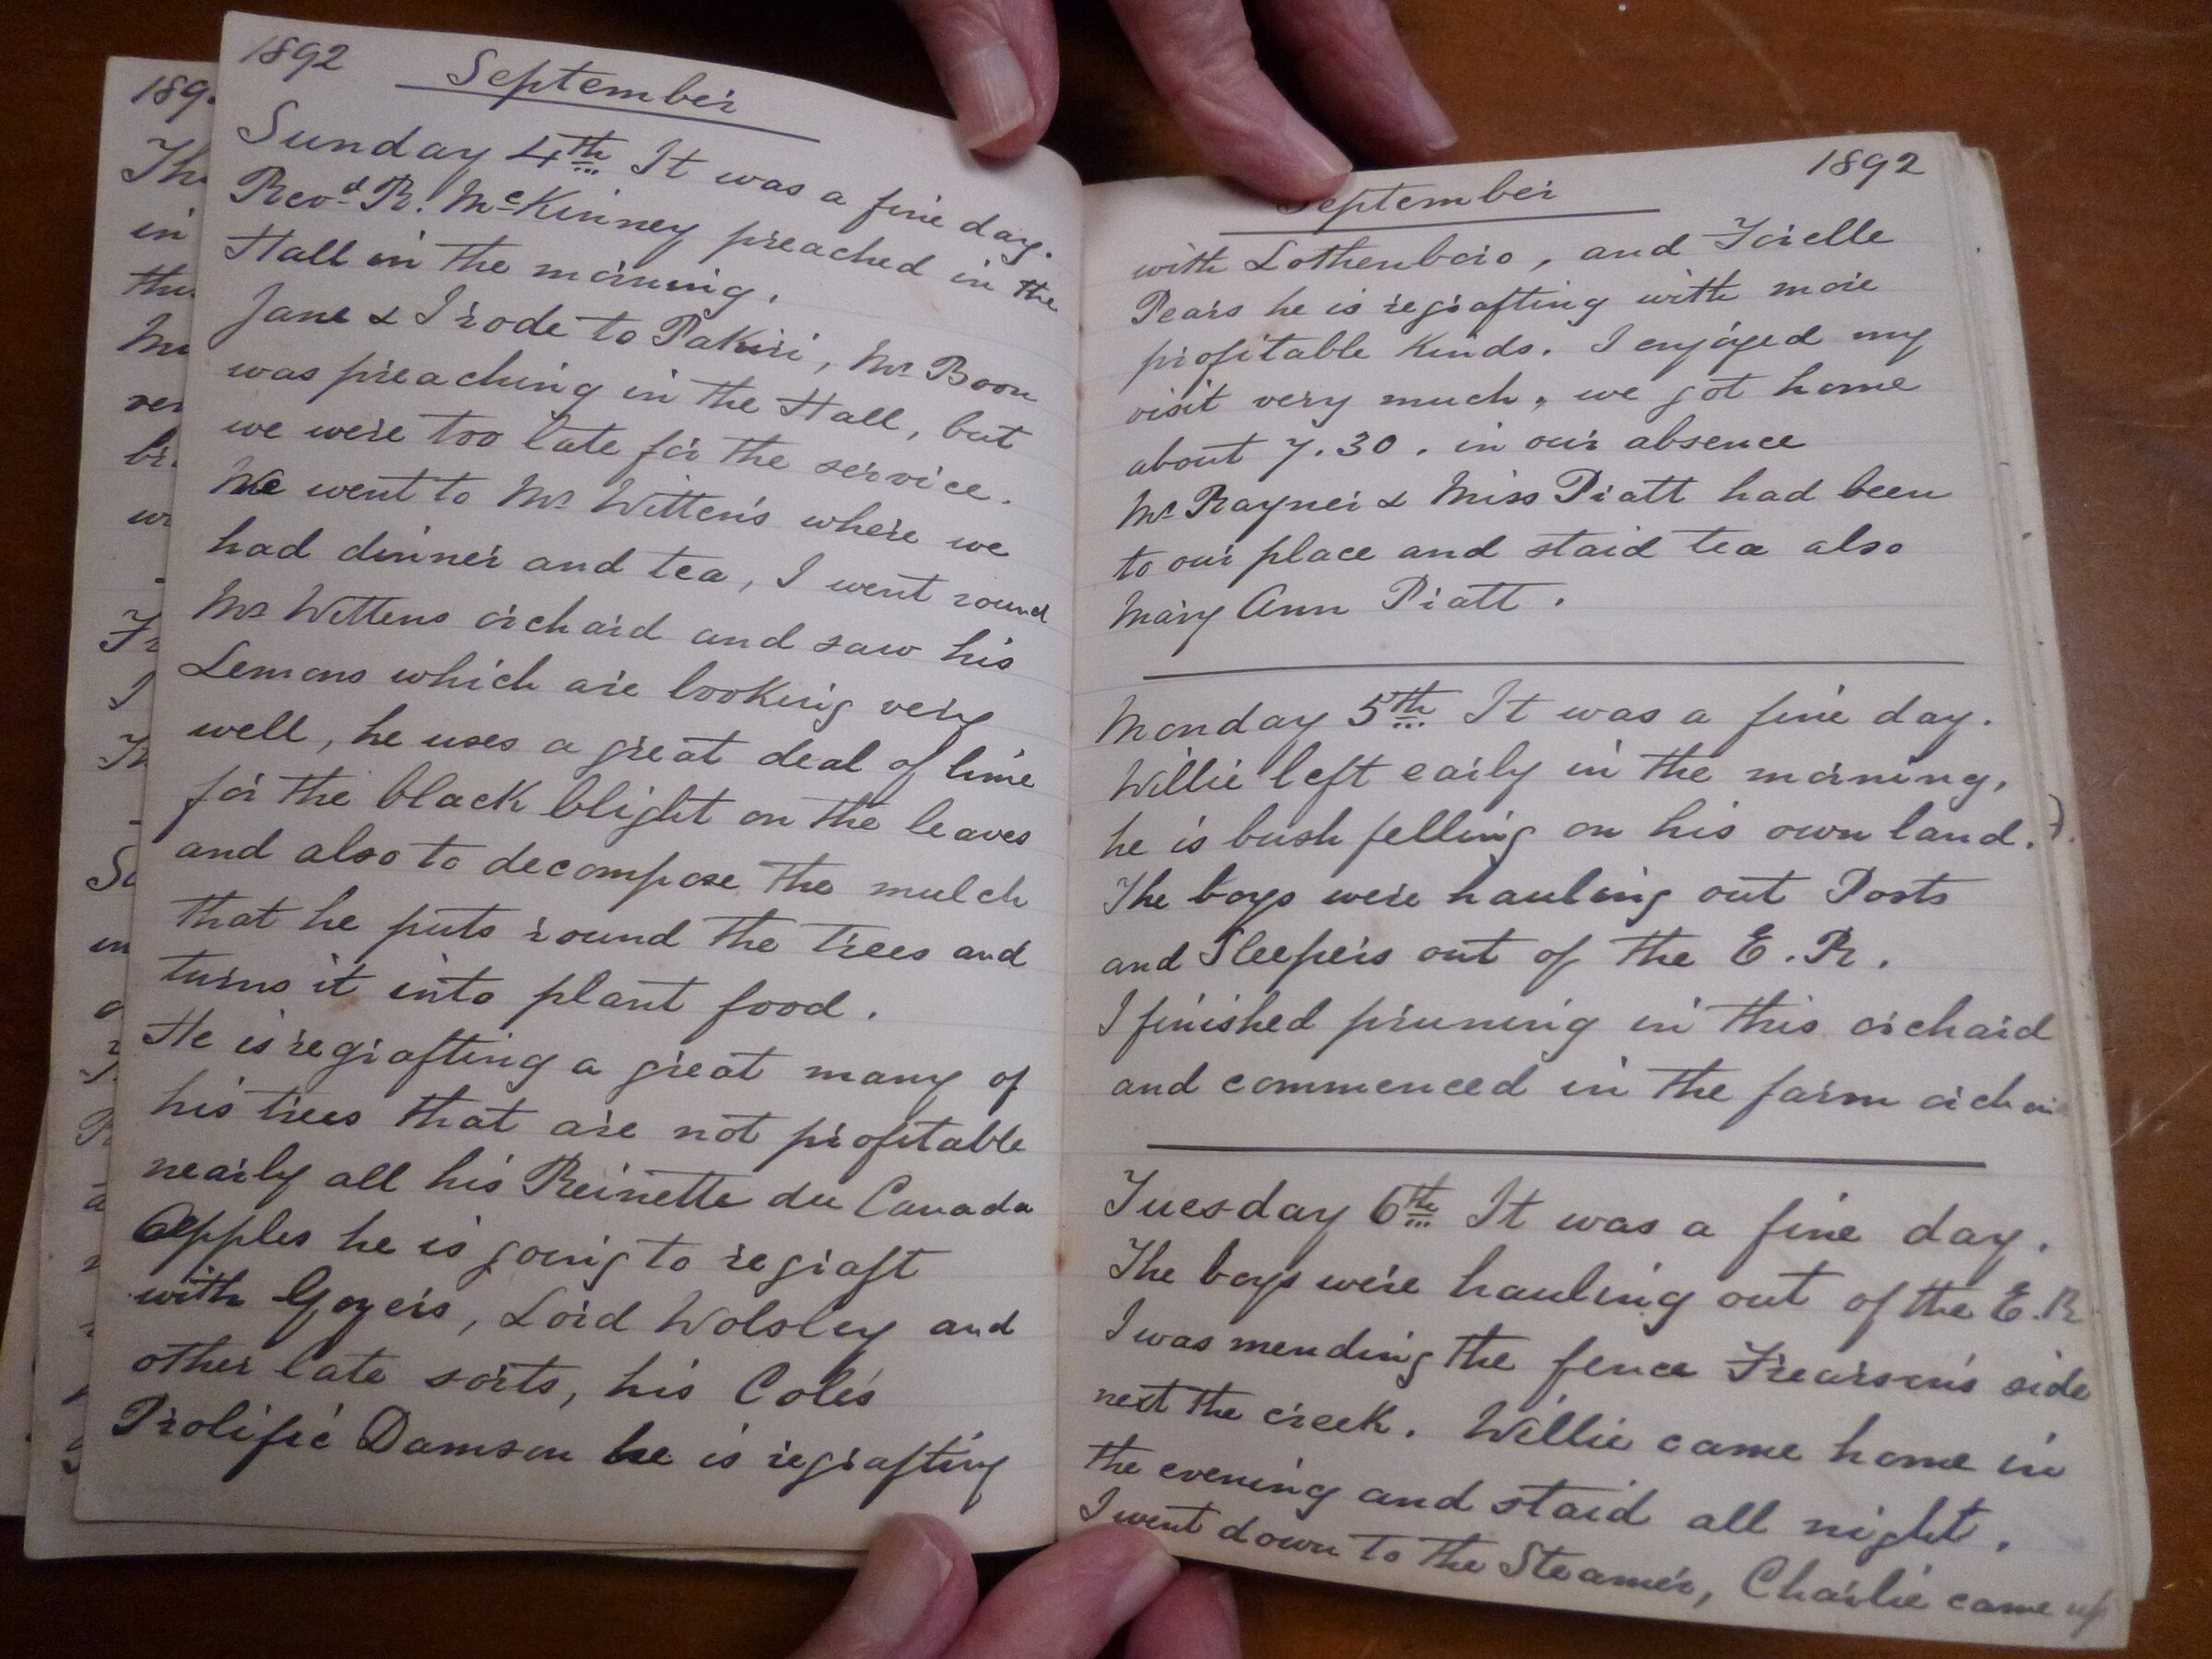 1892
September
Sunday 4th It was a fine day.
Revd R. McKinney preached in the
Hall in the morning.
Jane & I rode to Pakiri, Mr Boon
was preaching in the Hall, but
we were too late for the service.
We went to Mr Witten's where we
had dinner and tea, I went round
Mr Wittens orchard and saw his
Lemons which are looking very
well, he uses a great deal of lime
for the black blight on the leaves
and also to decompose the mulch
that he puts round the trees and
turns it into plant food.
He is regrafting a great many of
his trees that are not profitable
nearly all his Reinette du Canada
Apples he is going to regraft
with Yoyers, Lord Wolsley and
other late sorts, his Cole's
Prolific Damson he is regrafting
1892
September
with Lothenbrio, and Trielle
Pears he is regrafting with more
profitable Kinds. I enjoyed my
visit very much, we got home
about 7.30. in our absence
Mr Rayner & Miss Pratt had been
to our place and staid tea also
Mary Ann Pratt.
Monday 5th It was a fine day.
Willie left early in the morning,
he is bush felling on his own land.
The boys were hauling out Posts
and Sleepers out of the E.R.
I finished pruning in this orchard
and commenced in the farm
Tuesday 6th It was a fine day.
The boys were hauling out of the E.R
I was mending the fence Frearson's side
next the creek. Willie came home in
the evening and staid all night.
I went down to the Steamer, Charlie came up